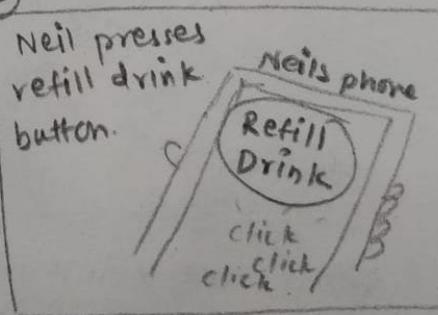 Neil presses
refill drink
button.
Neils phone
Refill
Drink
click
click
click